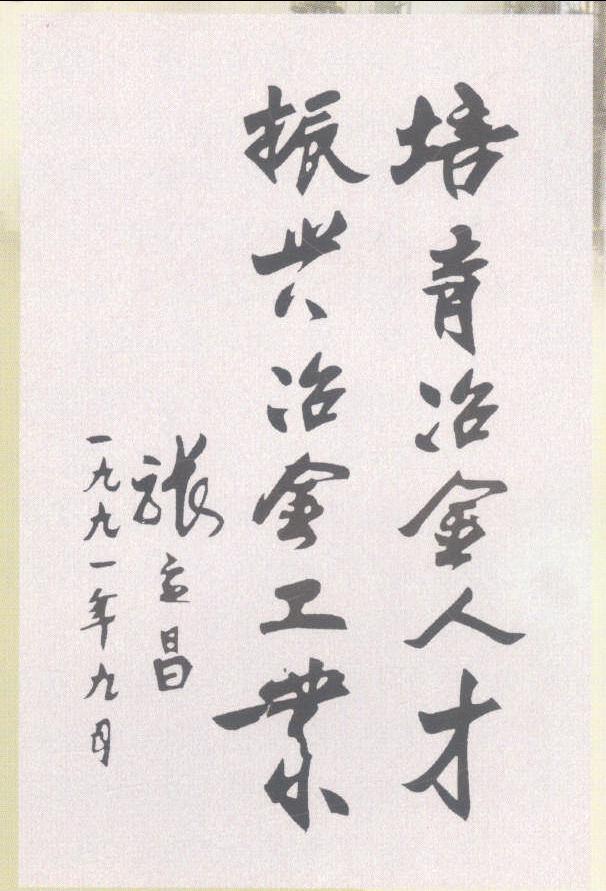 培育冶金人才
振兴冶金工業
張立昌
一九九一年九月